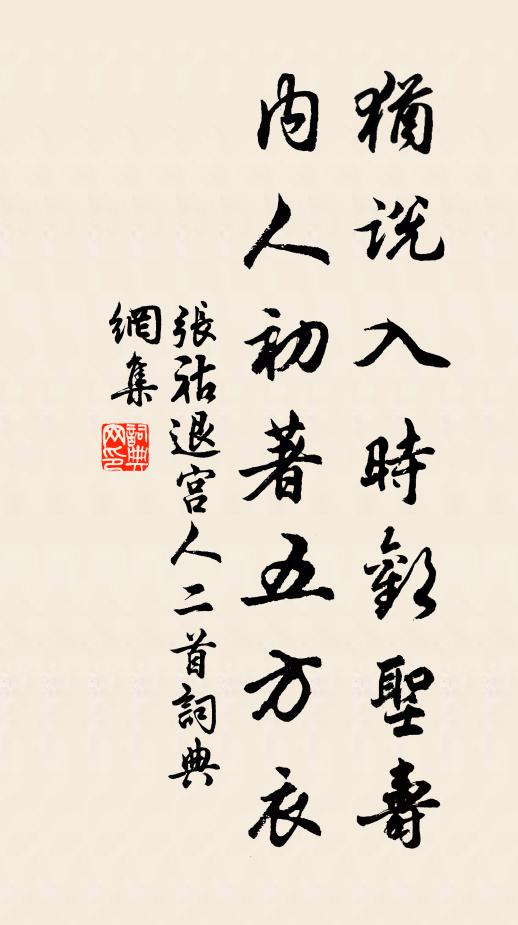 猶說入時歡聖壽
內人初著五方衣
張祜退宮人二首詞典
網集
詞典
网印